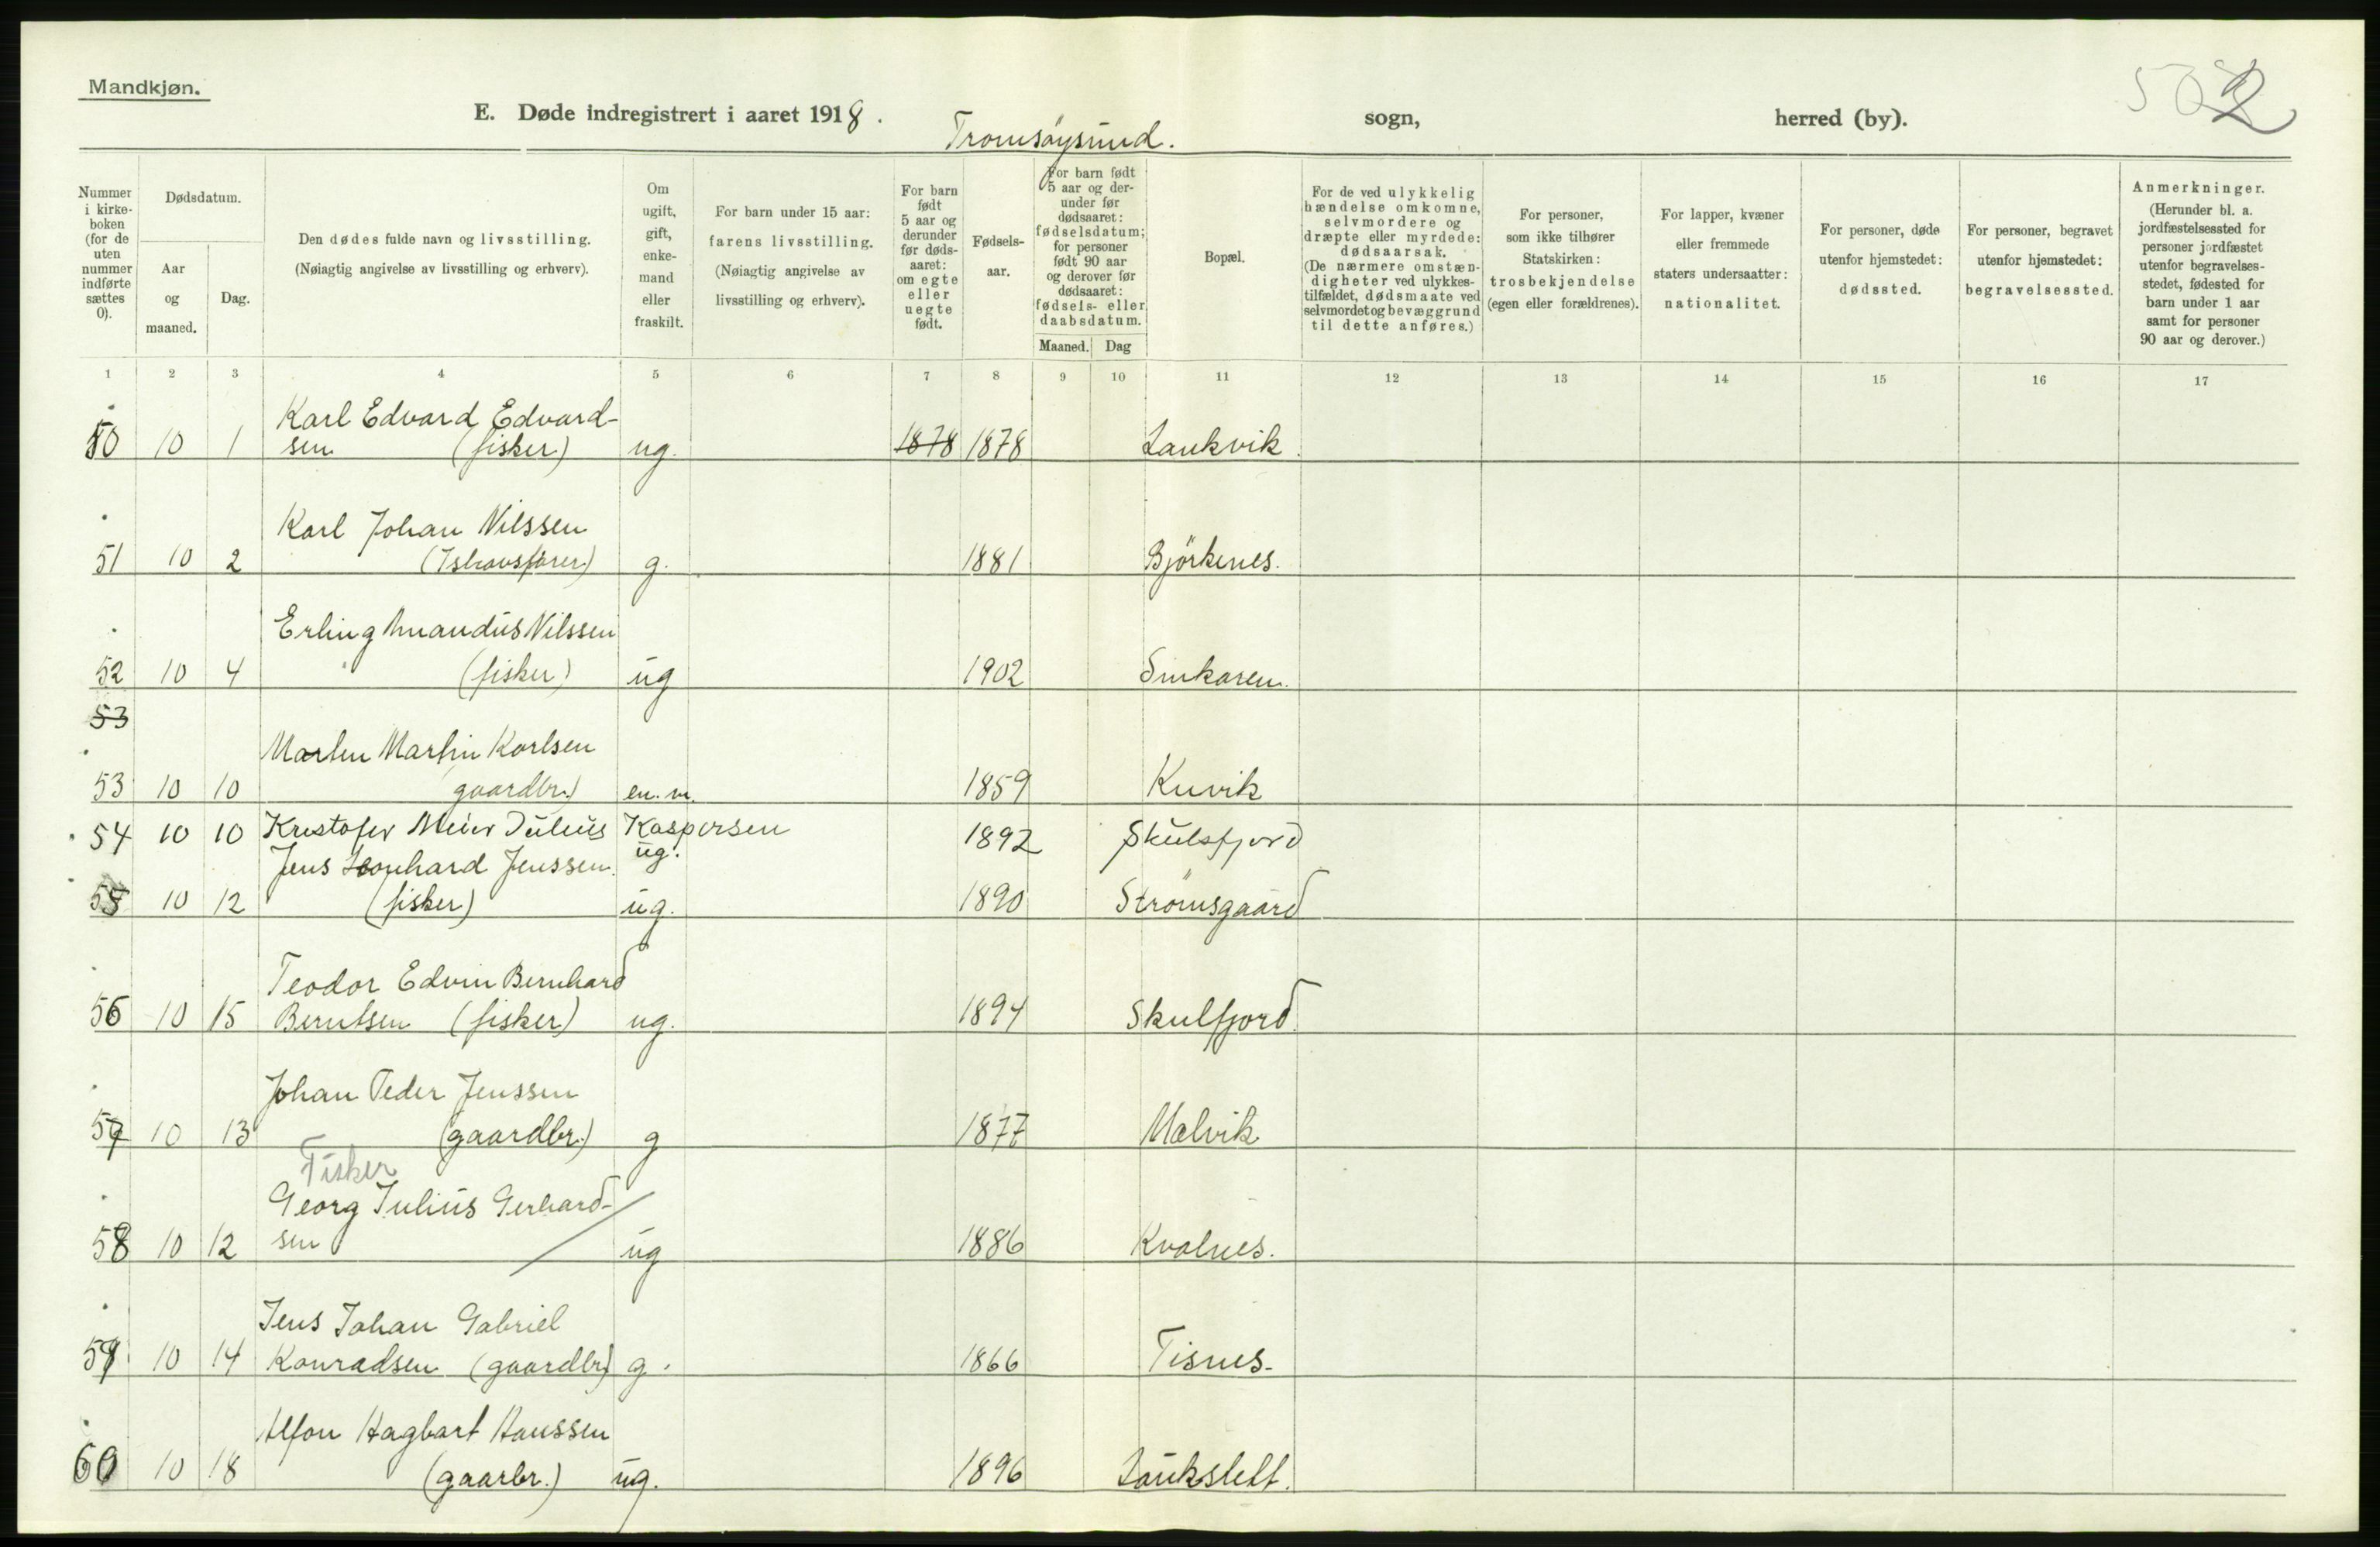 Mandkjøn.
502
E. Døde indregistrert i aaret 1918. Tromsöysund. sogn, herred (by).
Nummer i kirkeboken (for de uten nummer indførte sættes 0).
Dødsdatum.
Aar og maaned.
Dag.
Den dødes fulde navn og livsstilling. (Nøiagtig angivelse av livsstilling og erhverv).
Om ugift, gift, enkemand eller fraskilt.
For barn under 15 aar: farens livsstilling. (Nøiagtig angivelse av livsstilling og erhverv).
For barn født 5 aar og derunder før dødsaaret: om egte eller uegte født.
Fødselsaar.
For barn født 5 aar og derunder før dødsaaret: fødselsdatum; for personer født 90 aar og derover før dødsaaret: fødsels- eller daabsdatum.
Maaned. Dag
Bopæl.
For de ved ulykkelig hændelse omkomne, selvmordere og dræpte eller myrdede: dødsaarsak. (De nærmere omstændigheter ved ulykkestilfældet, dødsmaate ved selvmordet og bevæggrund til dette anføres.)
For personer, som ikke tilhører Statskirken: trosbekjendelse (egen eller forældrenes).
For lapper, kvæner eller fremmede staters undersaatter: nationalitet.
For personer, døde utenfor hjemstedet: dødssted.
For personer, begravet utenfor hjemstedet: begravelsessted.
Anmerkninger. (Herunder bl. a. jordfæstelsessted for personer jordfæstet utenfor begravelsesstedet, fødested for barn under 1 aar samt for personer 90 aar og derover.)
1 2 3 4 5 6 7 8 9 10 11 12 13 14 15 16 17
Karl Edvard Edvard-
50 10 1 sen (fisker) ug. 1878 1878 Laukvik.
Karl Johan Nilssen
51 10 2 (Ishavsfarer) g. 1881 Björkenes.
Erling Amandus Nilssen
52 10 4 (fisker) ug 1902 Sinkaren.
53
Martin Karlsen
53 10 10 gaardbr.) en.m. 1859 Kuvik
54 10 10 Kristofer Meier Julius Kaspersen 1892 Skulsfjord
Jens Leonhard Jenssen. ug.
55 10 12 (fisker) ug. 1890 Strömsgaard
Teodor Edvin Bernhard
56 10 15 Berntsen (fisker) ug. 1894 Skulfjord.
Johan Peder Jenssen
57 10 13 (gaardbr.) g 1877 Malvik
Fisker
Georg Julius Gerhard-
58 10 12 sen ug 1886 Kvalnes.
Jens Johan Gabriel
59 10 14 Konradsen (gaardbr) g. 1866 Tisnes.
Alfon Hagbart Hanssen
60 10 18 (gaarbr.) ug. 1896 Laukslett.